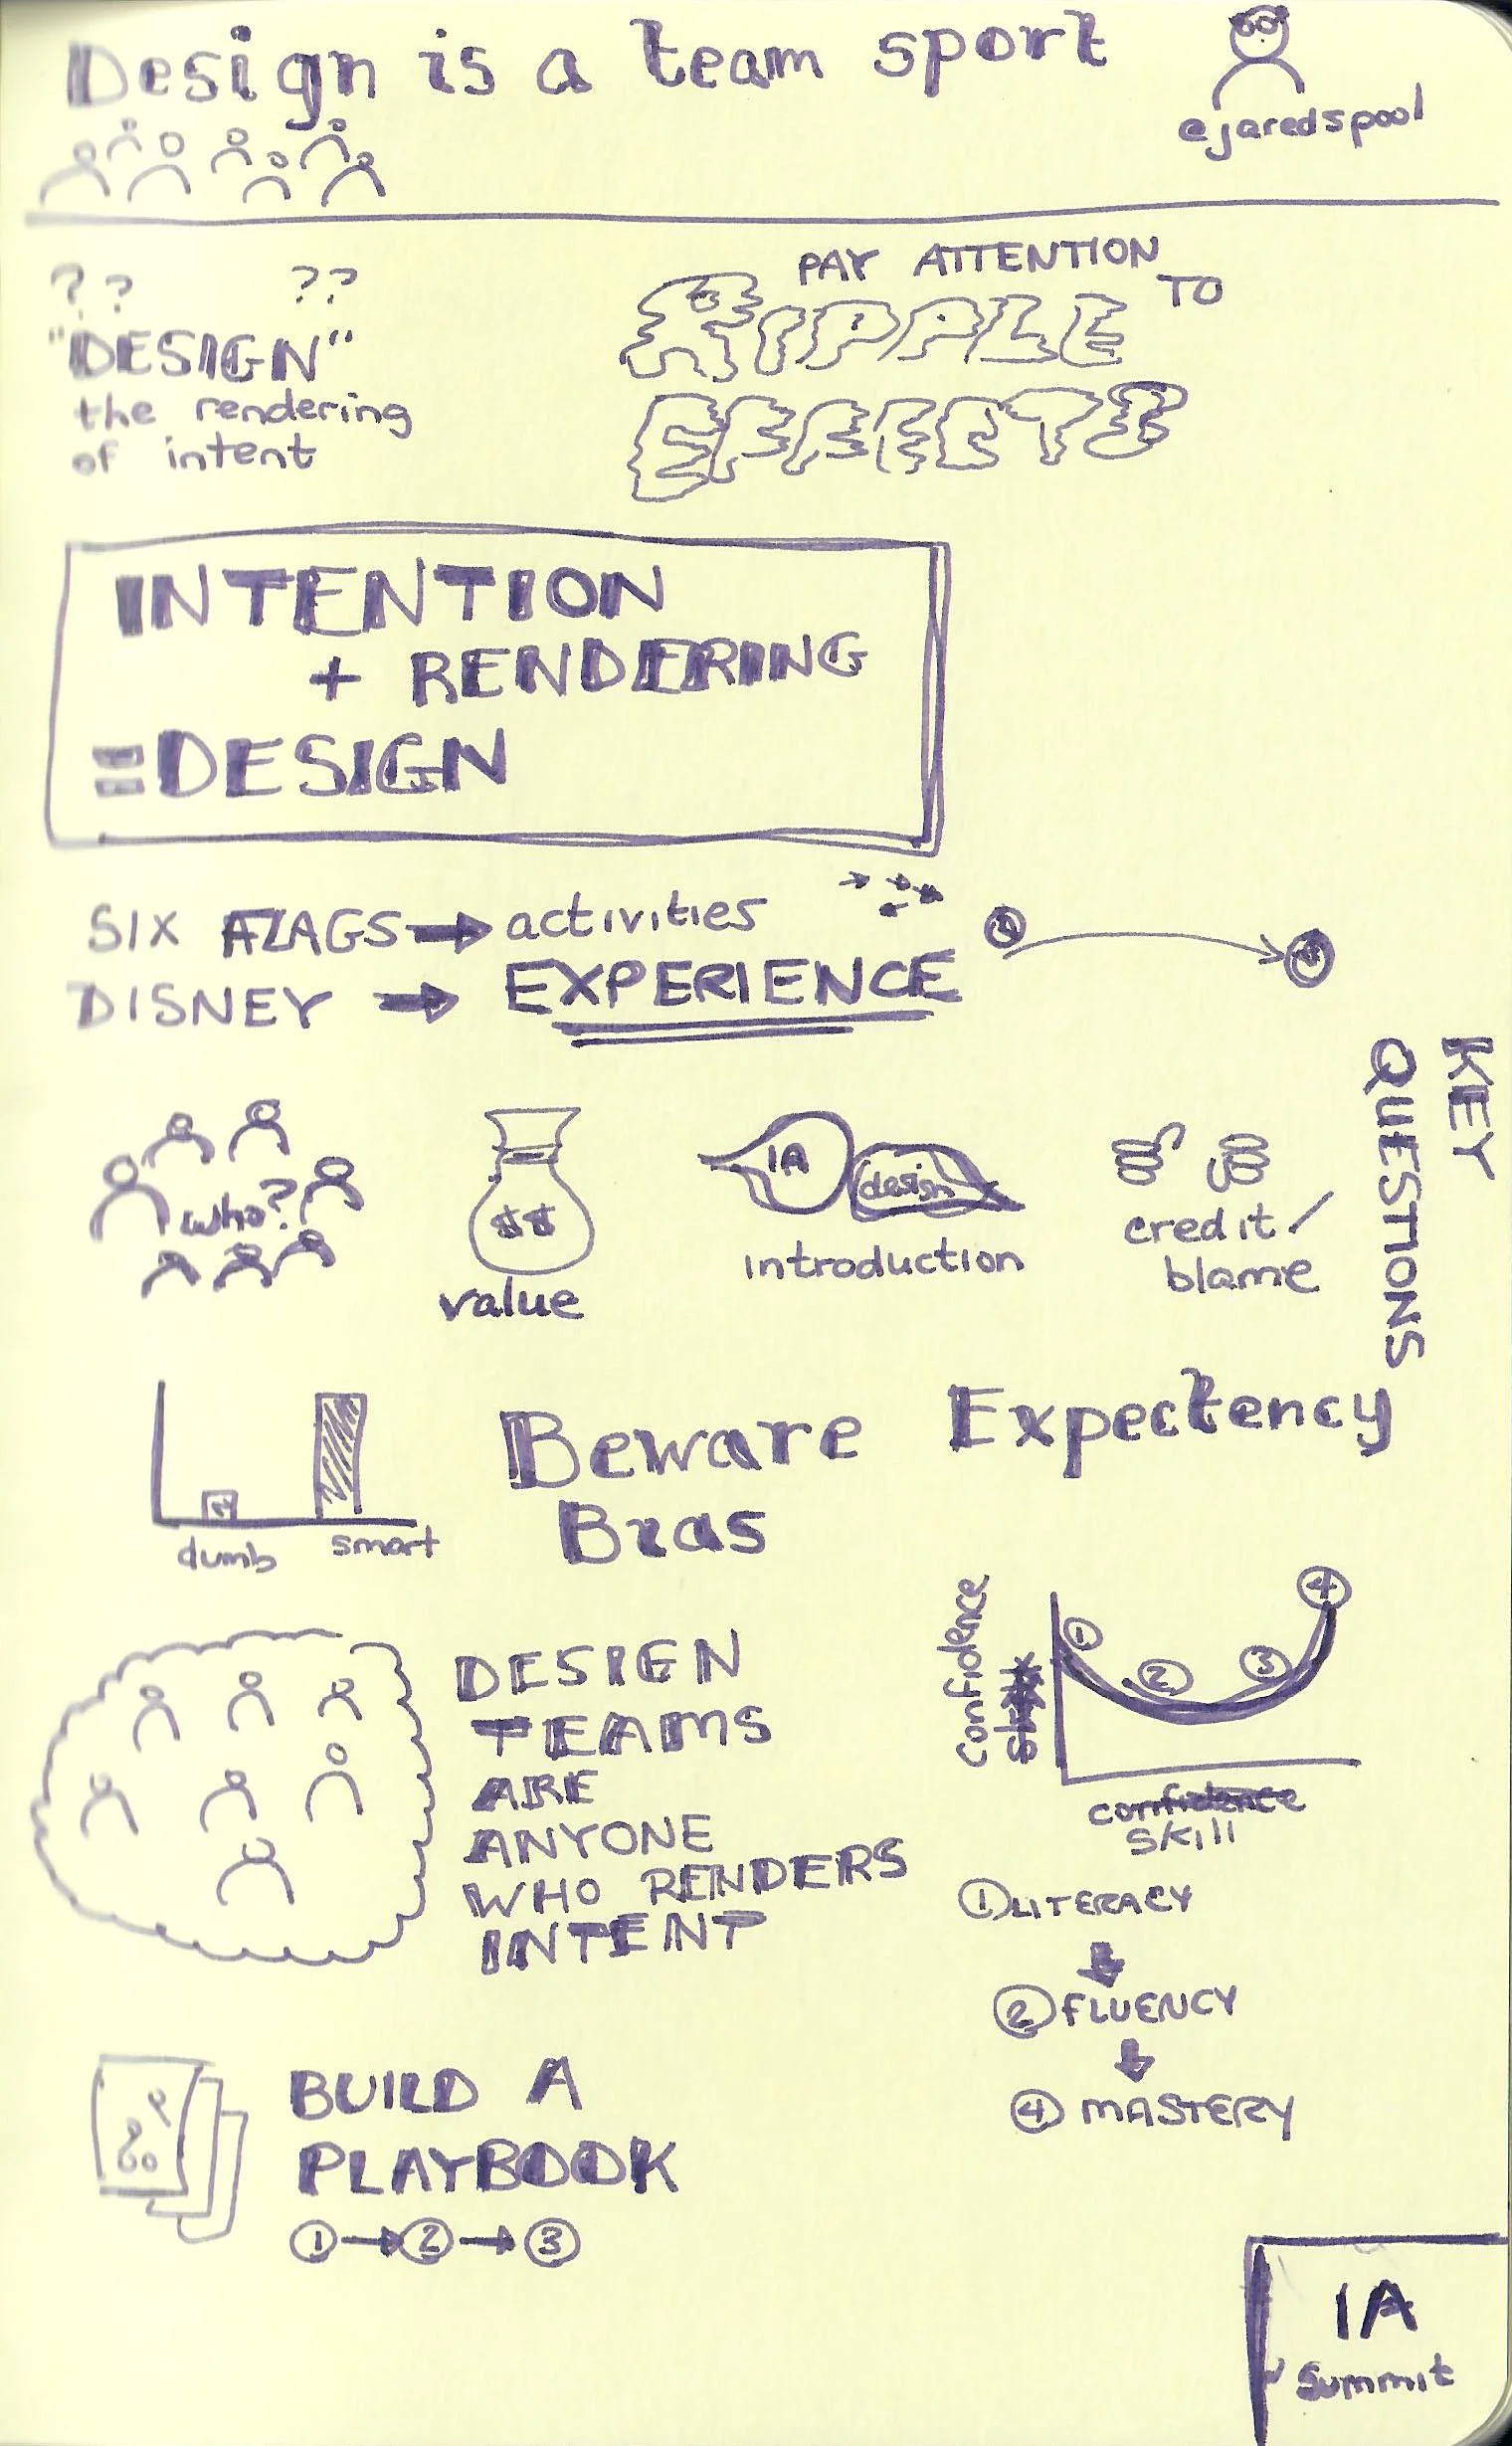 Design is a team sport
@jaredspool
?? ??
"DESIGN"
the rendering
of intent
PAY ATTENTION
TO
RIPPLE
EFFECTS
INTENTION
+ RENDERING
=DESIGN
SIX FLAGS → activities
DISNEY → EXPERIENCE
KEY
QUESTIONS
who?
$$
value
IA
design
introduction
credit/
blame
dumb
smart
Beware Expectency
Bias
DESIGN
TEAMS
ARE
ANYONE
WHO RENDERS
INTENT
Confidence
1
2
3
4
confidence
skill
① LITERACY
② FLUENCY
④ MASTERY
BUILD A
PLAYBOOK
① → ② → ③
IA
Summit